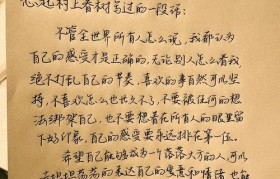 忽起村上春树写过的一段话:
不管全世界所有人怎么说,我都认为
自己的感受才是正确的。无论别人怎么看我,
绝不打乱自己的节奏,喜欢的事自然可以坚
持,不喜欢怎么也长久不了,不要被任何的想
法绑架自己,也不要想着在所有人的眼里留
下好印象,自己的感受要永远排在第一位。
希望自己能够成为一个落落大方的人,可以
坦坦荡荡的表达自己的寓意和情绪,也能